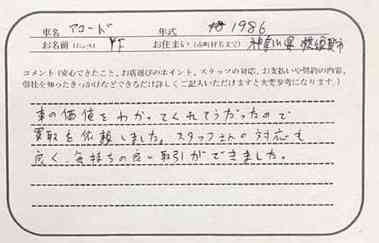 車名 アコード 年式 1986
お名前(イニシャル) Y.F お住まい(市町村名まで) 神奈川県 横須賀市
コメント(安心できたこと、お店選びのポイント、スタッフの対応、お支払いや契約の内容、
弊社を知ったきっかけなどできるだけ詳しくご記入いただけますと大変参考になります。)
車の価値をわかってくれてそうだったので
買取を依頼しました。スタッフさんの対応も
良く、気持ちの良い取引ができました。